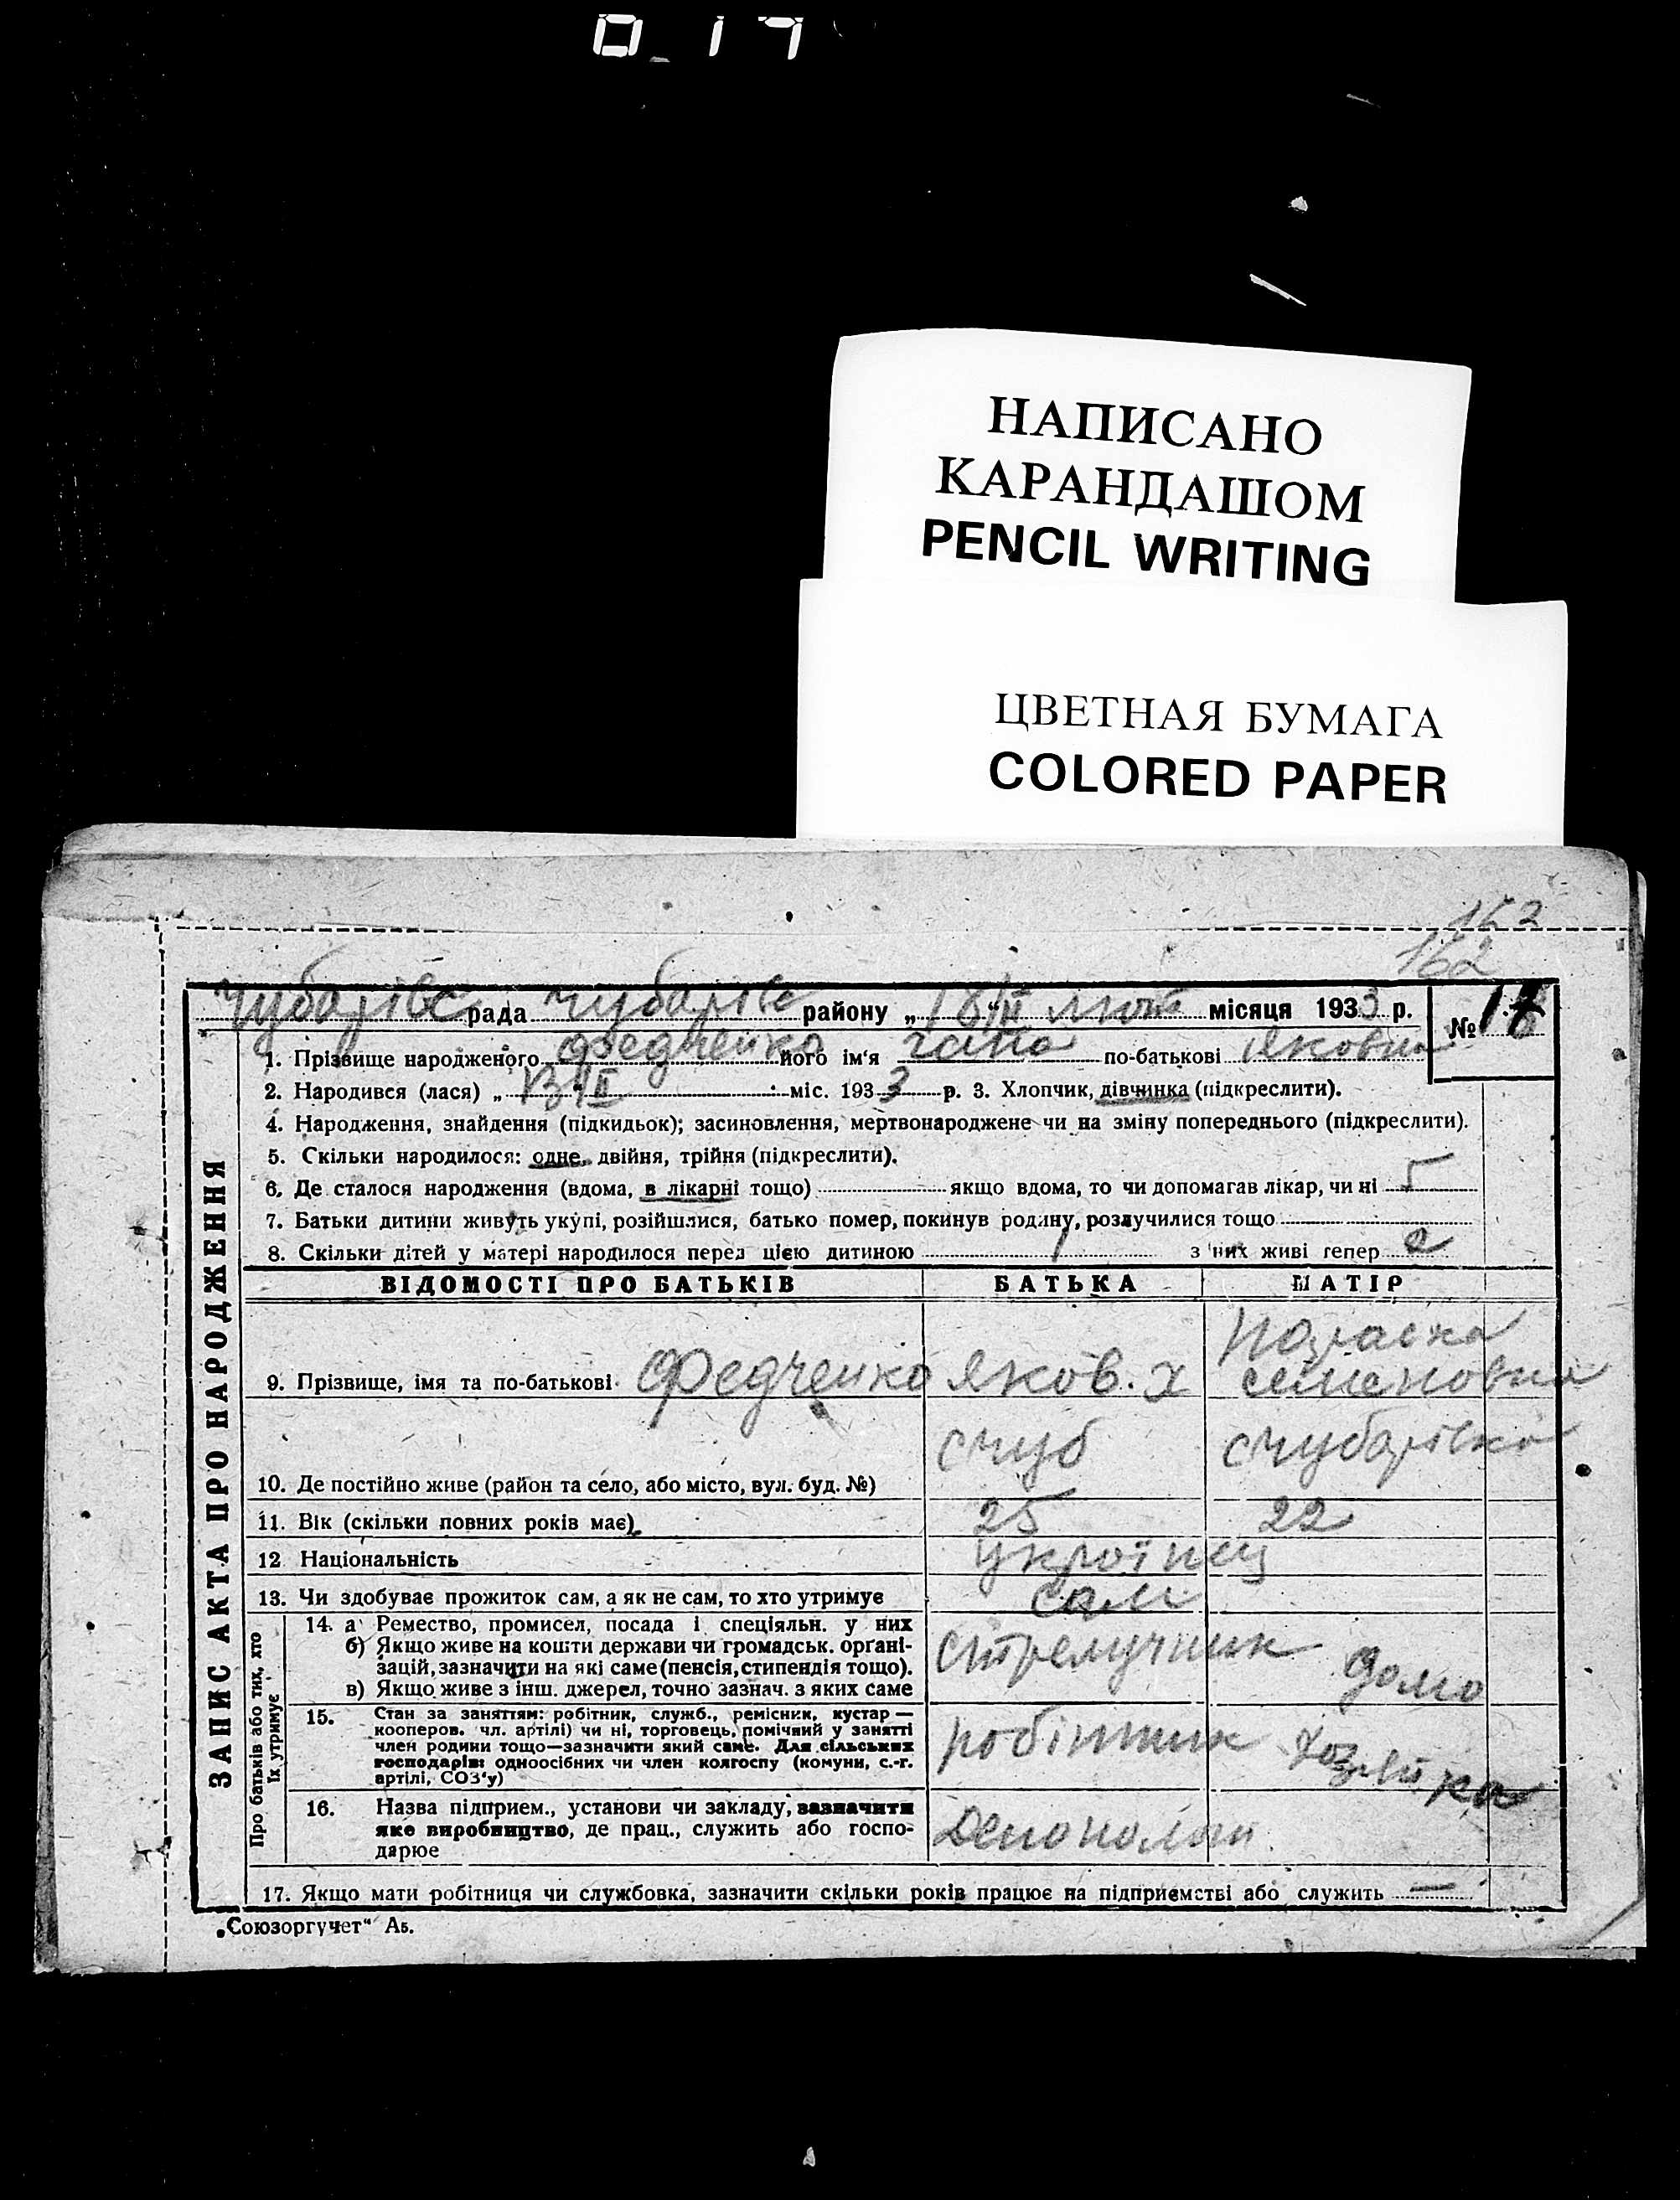 НАПИСАНО
КАРАНДАШОМ
PENCIL WRITING
ЦВЕТНАЯ БУМАГА
COLORED PAPER
152
162
Чубарівс рада Чубарівс району „18" II лют місяця 1933 р.
№
1. Прізвище народженого Федченко його ім'я гапа по-батькові Яковна
2. Народився (лася) „13" II міс. 1933 р. 3. Хлопчик, дівчинка (підкреслити).
4. Народження, знайдення (підкидьок); засиновлення, мертвонароджене чи на зміну попереднього (підкреслити).
5. Скільки народилося: одне, двійня, трійня (підкреслити).
6. Де сталося народження (вдома, в лікарні тощо) якщо вдома, то чи допомагав лікар, чи ні
7. Батьки дитини живуть укупі, розійшлися, батько помер, покинув родину, розлучилися тощо
8. Скільки дітей у матері народилося перед цією дитиною 1 з них живі тепер 2
ЗАПИС АКТА ПРО НАРОДЖЕННЯ
ВІДОМОСТІ ПРО БАТЬКІВ БАТЬКА МАТІР
9. Прізвище, імя та по-батькові Федченко Яков. Х Параска семеновна
10. Де постійно живе (район та село, або місто, вул. буд. №) с чуб с чубарівка
11. Вік (скільки повних років має) 25 22
12 Національність україпец
13. Чи здобуває прожиток сам, а як не сам, то хто утримує сам
Про батьків або тих, хто
їх утримує
14. а) Ремество, промисел, посада і спеціяльн. у них
б) Якщо живе на кошти держави чи громадськ. органі-
зацій, зазначити на які саме (пенсія, стипендія тощо).
в) Якщо живе з інш. джерел, точно зазнач. з яких саме
стрелучник домо
15. Стан за заняттям: робітник, служб., ремісник, кустар —
кооперов. чл. артілі) чи ні, торговець, помічний у занятті
член родини тощо—зазначити який саме. Для сільських
господарів: одноосібних чи член колгоспу (комуни, с.-г.
артілі, СОЗ'у)
робітник хозяйка
16. Назва підприєм., установи чи закладу, зазначити
яке виробництво, де прац., служить або госпо-
дарює
17. Якщо мати робітниця чи службовка, зазначити скільки років працює на підприємстві або служить —
„Союзоргучет" Аб.